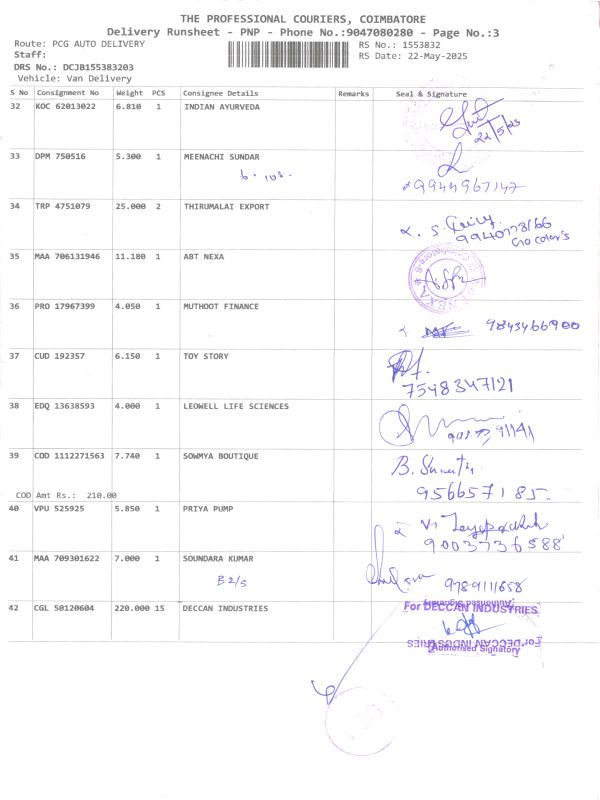 THE PROFESSIONAL COURIERS, COIMBATORE
Delivery Runsheet - PNP - Phone No.:9047080280 - Page No.:3
Route: PCG AUTO DELIVERY RS No.: 1553832
Staff: RS Date: 22-May-2025
DRS No.: DCJB155383203
Vehicle: Van Delivery
S No Consignment No Weight PCS Consignee Details Remarks Seal & Signature
32 KOC 62013022 6.810 1 INDIAN AYURVEDA
22/5/25
33 DPM 750516 5.300 1 MEENACHI SUNDAR
9944967147
34 TRP 4751079 25.000 2 THIRUMALAI EXPORT
35 MAA 706131946 11.180 1 ABT NEXA
36 PRO 17967399 4.050 1 MUTHOOT FINANCE
9843466900
37 CUD 192357 6.150 1 TOY STORY
7548347121
38 EDQ 13638593 4.000 1 LEOWELL LIFE SCIENCES
39 COD 1112271563 7.740 1 SOWMYA BOUTIQUE
B.
9566571185
COD Amt Rs.: 210.00
40 VPU 525925 5.850 1 PRIYA PUMP
9003736588
41 MAA 709301622 7.000 1 SOUNDARA KUMAR
B2/5 9789111658
42 CGL 50120604 220.000 15 DECCAN INDUSTRIES
For DECCAN INDUSTRIES
Authorised Signatory
For DECCAN INDUSTRIES
Authorised Signatory